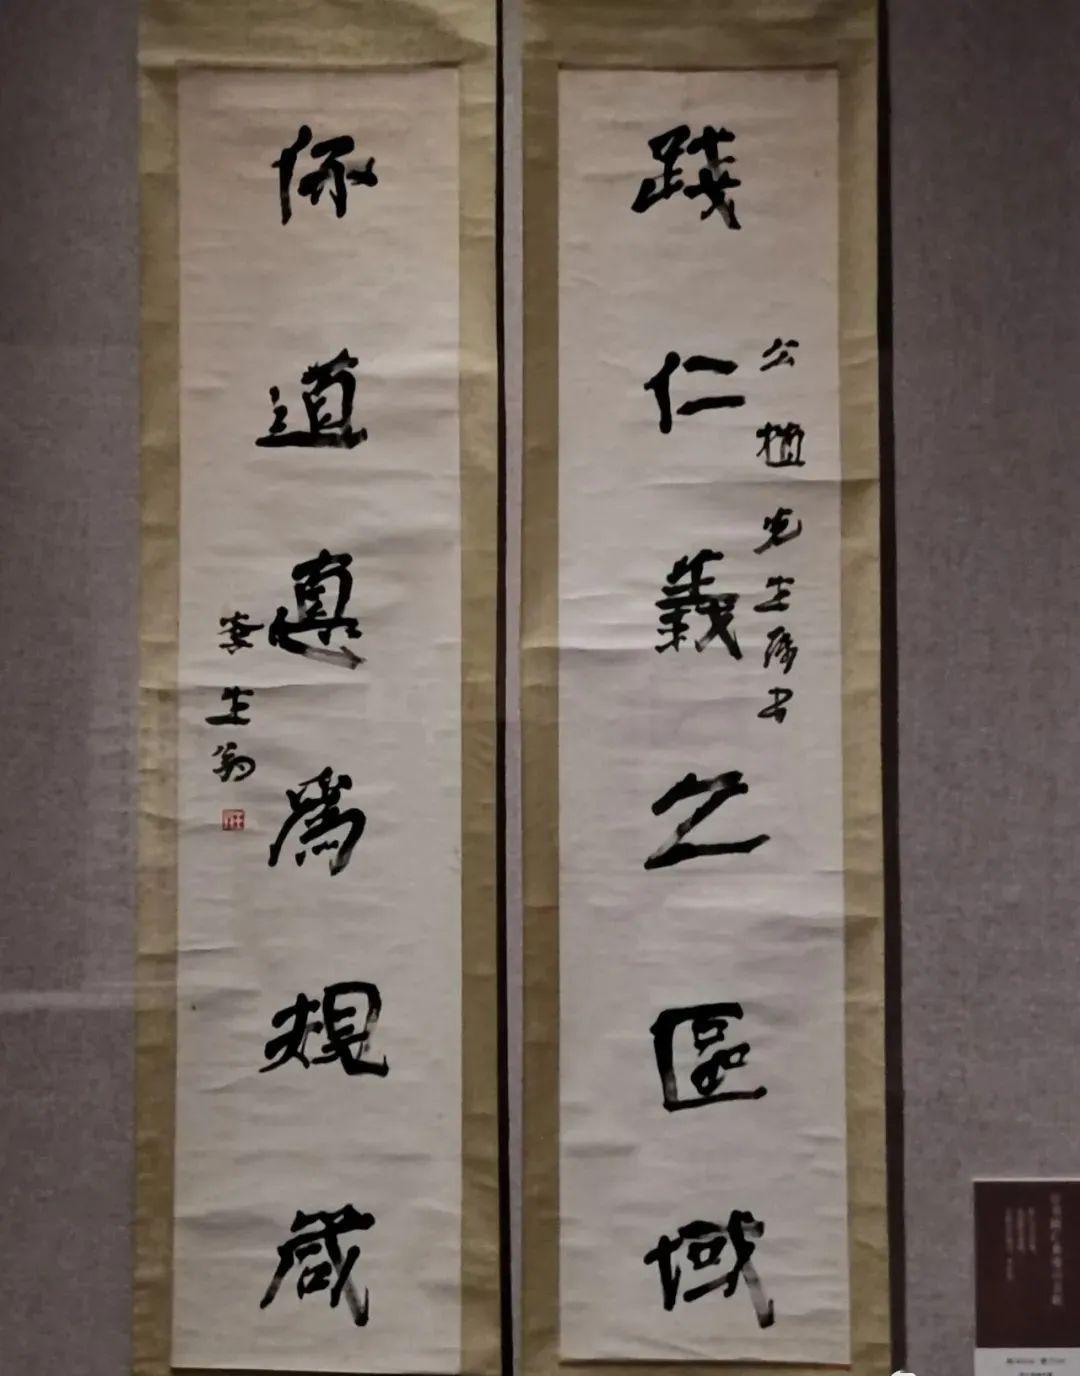 踐仁義之區域
公植先生屬書
依道惪為規箴
李生翁